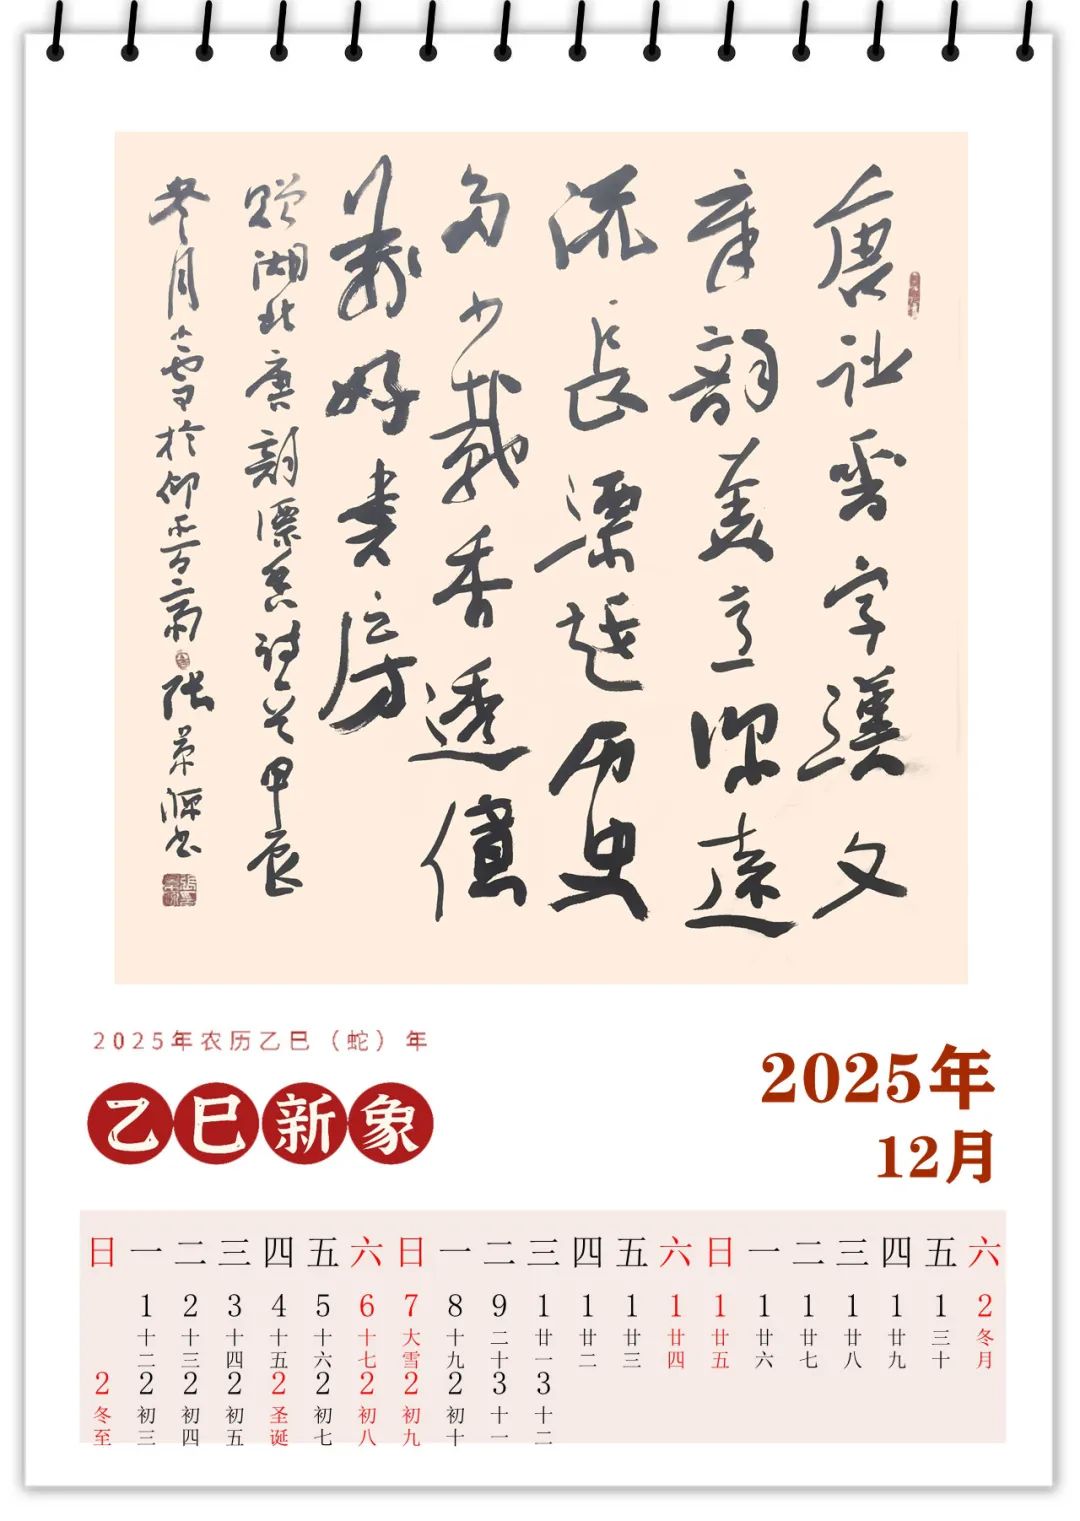 唐字漢文
章韵美意深遠
流長漂越历史
多少載香透億
萬好書房
赠湖北唐韵漂香诗甲辰
冬月小雪於仰斋 张荣源书
2025年农历乙巳（蛇）年
乙巳新象
2025年
12月
日 一 二 三 四 五 六 日 一 二 三 四 五 六 日 一 二 三 四 五 六
1 2 3 4 5 6 7 8 9 1 1 1 1 1 1 1 1 1 1 2
十二 十三 十四 十五 十六 十七 大雪 十九 二十 廿一 廿二 廿三 廿四 廿五 廿六 廿七 廿八 廿九 三十 冬月
2 2 2 2 2 2 2 2 2 3 3
冬至 初三 初四 初五 圣诞 初七 初八 初九 初十 十一 十二